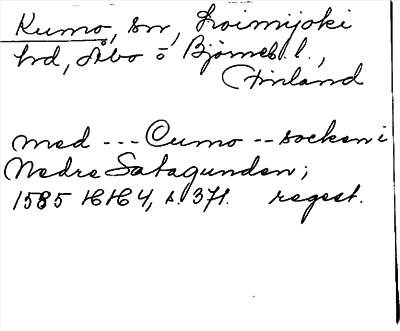 Kumo, sn, Loimijoki
hd, Åbo o Björneb. l.,
Finland
med --- Cumo -- socken i
Nedre Satagunden;
1585 16164, s. 371. regest.